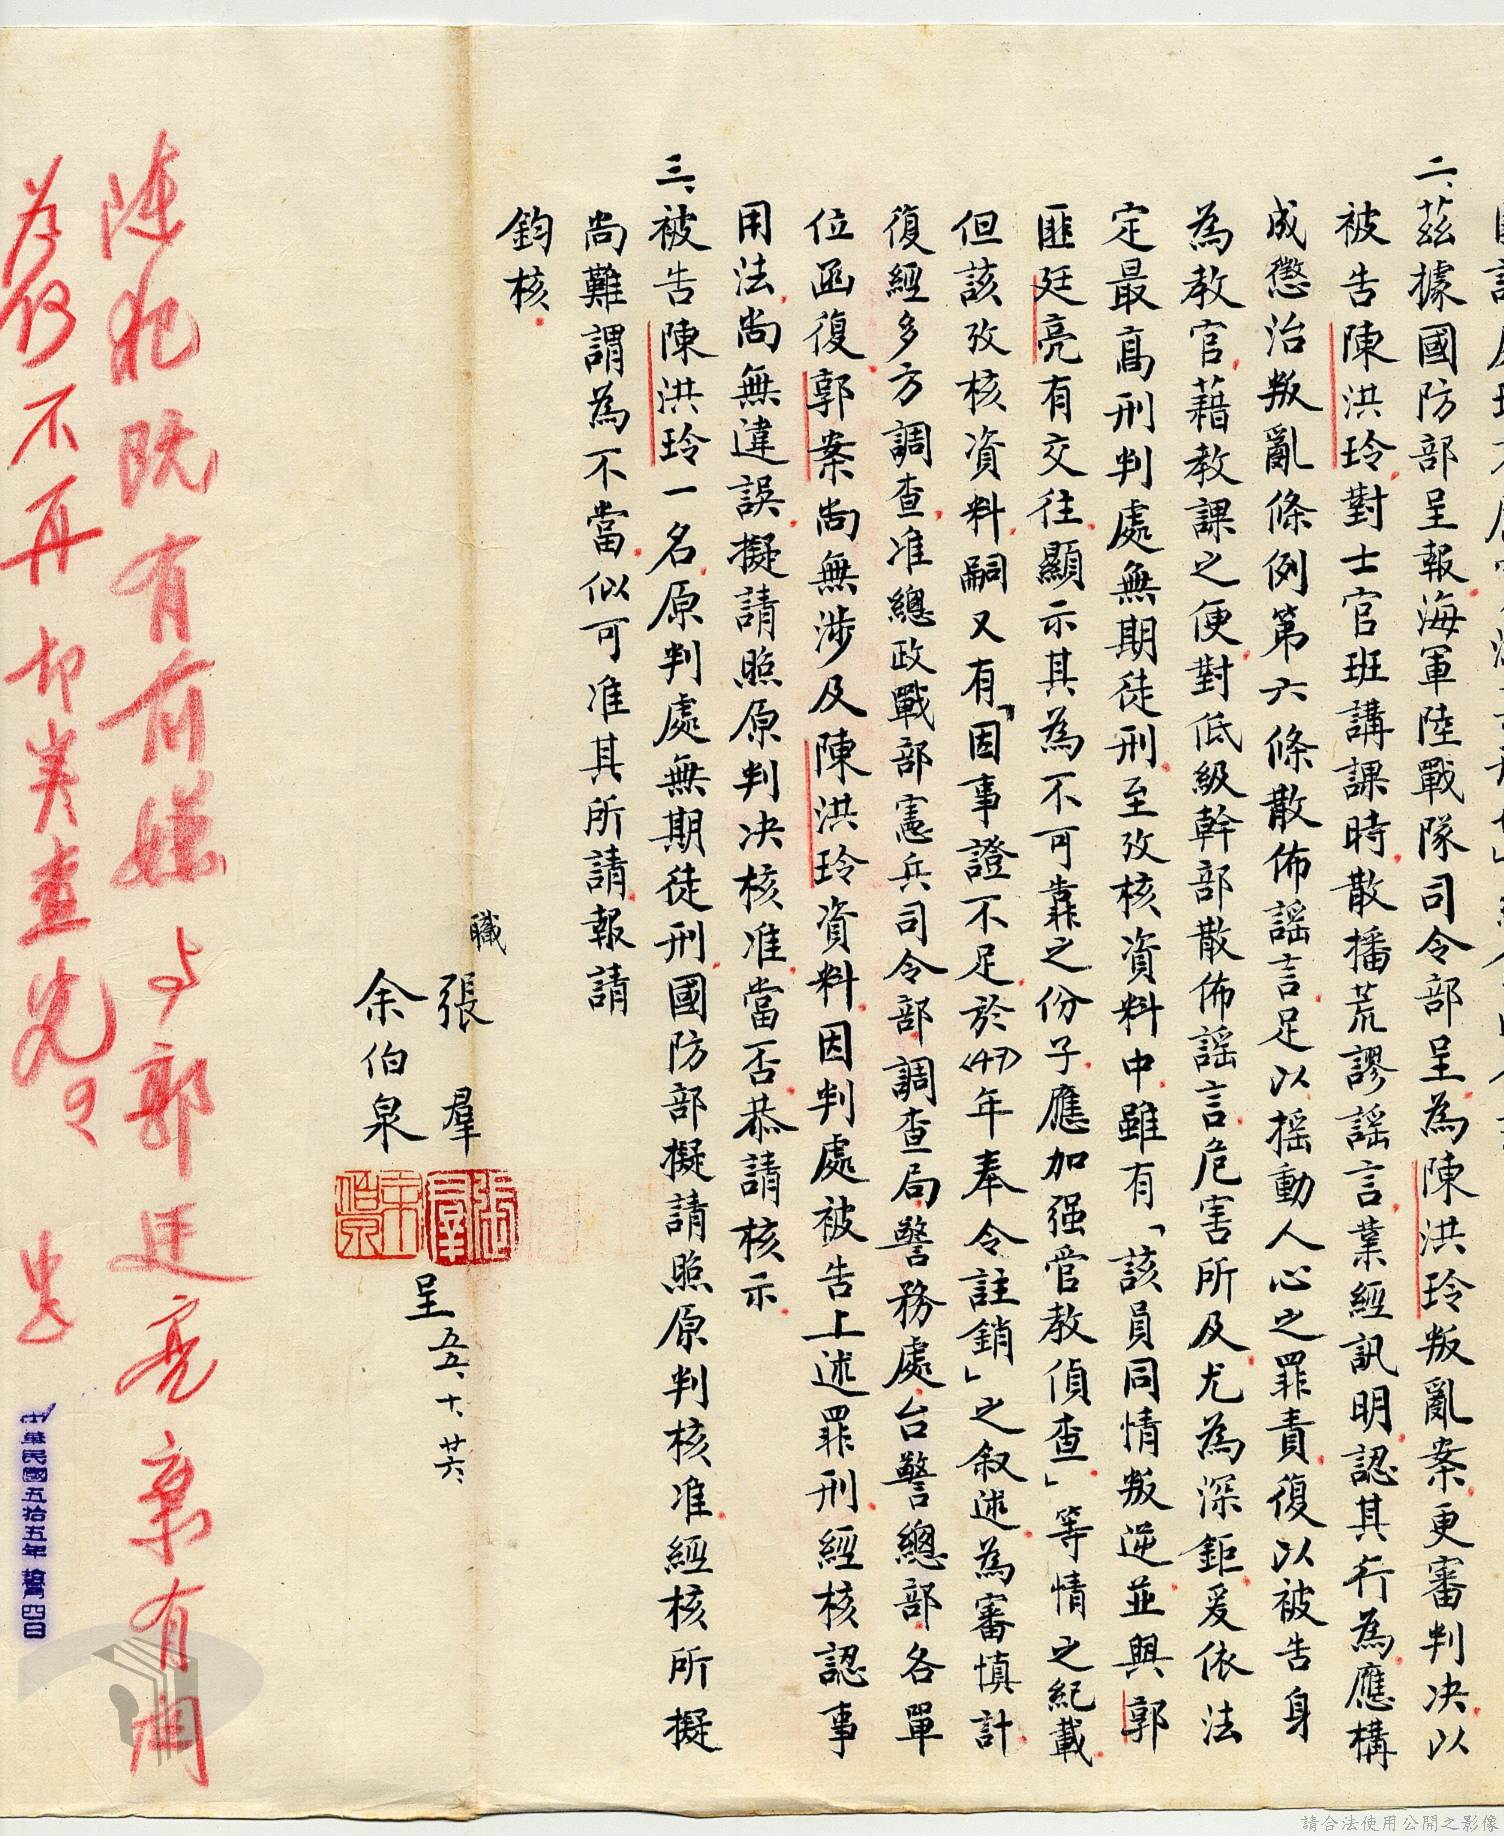 二、茲據國防部呈報海軍陸戰隊司令部呈為陳洪玲叛亂案更審判決以
被告陳洪玲對士官班講課時散播荒謬謠言業經訊明認其行為應構
成懲治叛亂條例第六條散佈謠言足以搖動人心之罪責復以被告身
為教官藉教課之便對低級幹部散佈謠言危害所及尤為深鉅爰依法
定最高刑判處無期徒刑至攷核資料中雖有「該員同情叛逆並與郭
匪廷亮有交往顯示其為不可靠之份子應加强管教偵查」等情之紀載
但該攷核資料嗣又有「因事證不足於(47)年奉令註銷」之叙述為審慎計
復經多方調查准總政戰部憲兵司令部調查局警務處台警總部各單
位函復郭案尚無涉及陳洪玲資料因判處被告上述罪刑經核認事
用法尚無違誤擬請照原判決核准當否恭請核示
三、被告陳洪玲一名原判處無期徒刑國防部擬請照原判核准經核所擬
尚難謂為不當似可准其所請報請
鈞核
職
張羣
余伯泉
呈 五五、十、廿六、
陳犯既有前嫌与郭廷亮案有關
為何不再
中華民國五拾五年 四日
請合法使用公開之影像